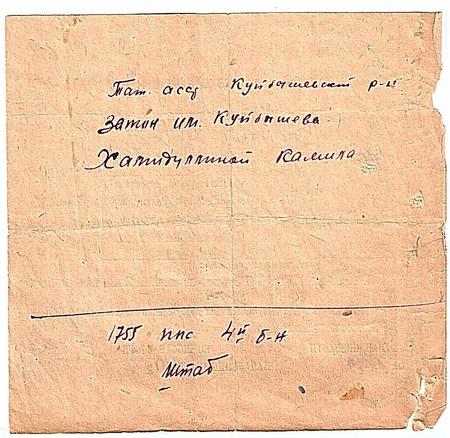 Тат. асср Куйбышевский р-н
Затон им. Куйбышева.
Халидуллиной Камила
1755 ппс 4й б-н
Штаб